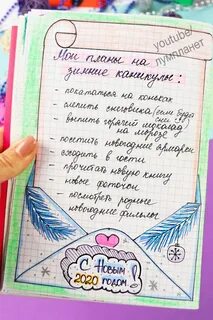 youtube:
лумпланет
Мои планы на
зимние каникулы:
- покататься на коньках
- слепить снеговика (если будет
снег)
- выпить горячий шоколад
на морозе
- посетить новогодние ярмарки
- сходить в гости
- прочитать новую книгу
- новые фоточки
- посмотреть разные
новогодние фильмы
С Новым
2020 годом!